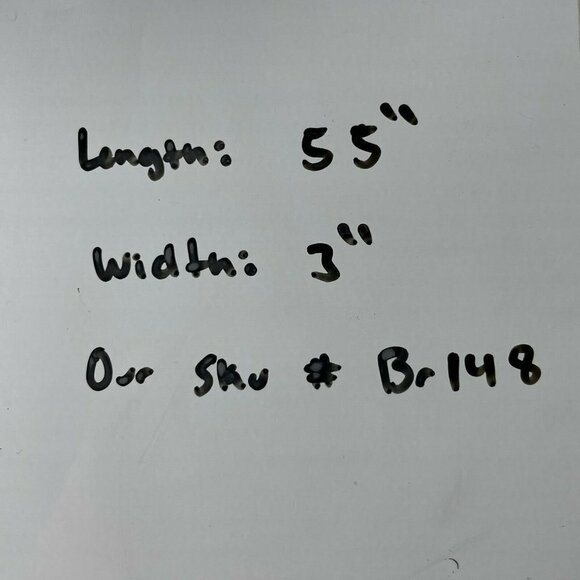 Length: 55"
Width: 3"
Our Sku # Br148